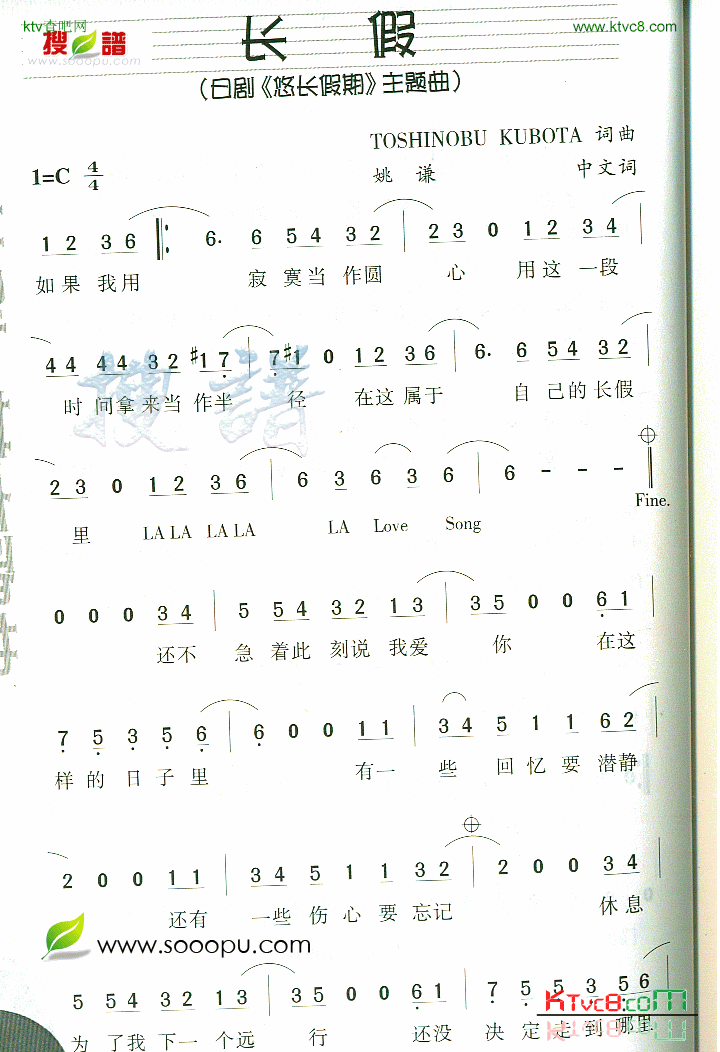 ktv杏吧网
搜谱
www.sooopu.com
www.ktvc8.com
长 假
(日剧《悠长假期》主题曲)
TOSHINOBU KUBOTA 词曲
1=C 4/4
姚 谦 中文词
1 2 3 6 6. 6 5 4 3 2 2 3 0 1 2 3 4
如果 我用 寂 寞当 作圆 心 用这 一段
4 4 4 4 3 2 #1 7 7 #1 0 1 2 3 6 6. 6 5 4 3 2
时 间拿 来当 作半 径 在这 属于 自 己的 长假
搜譜
2 3 0 1 2 3 6 6 3 6 3 6 6 - - -
Fine.
里 LALA LALA LA Love Song
0 0 0 3 4 5 5 4 3 2 1 3 3 5 0 0 6 1
还不 急 着此 刻说 我爱 你 在这
7 5 3 5 6 6 0 0 1 1 3 4 5 1 1 6 2
样 的 日 子 里 有一 些 回 忆 要 潜静
2 0 0 1 1 3 4 5 1 1 3 2 2 0 0 3 4
还有 一些 伤 心 要 忘记 休息
www.sooopu.com
5 5 4 3 2 1 3 3 5 0 0 6 1 7 5 5 3 5 6
KTvc8.com
为 了我 下一 个远 行 还没 决 定 走 到 哪里